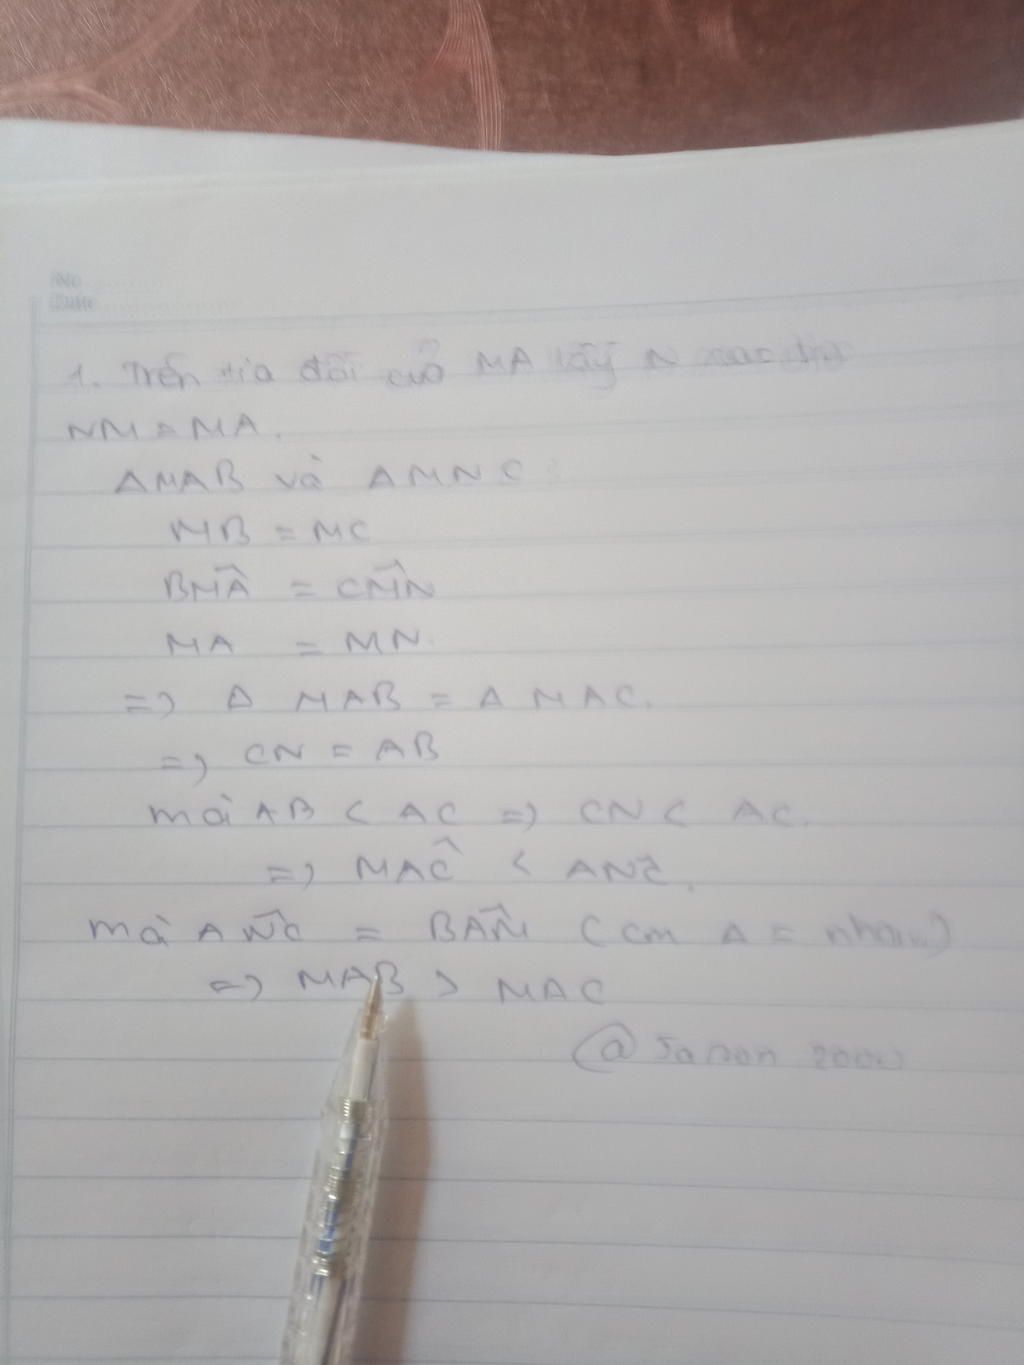 No
Date
1. Trên tia đối của MA lấy N xác định
NM = MA.
ΔMAB và ΔMNC:
MB = MC
BMÂ = CM̂N
MA = MN.
=> Δ MAB = Δ MAC.
=> CN = AB
mà AB < AC => CN < AC.
=> MAĈ < ANĈ.
mà AN̂C = BÂM (cm Δ = nhau)
=> MAB > MAC
@ Japon